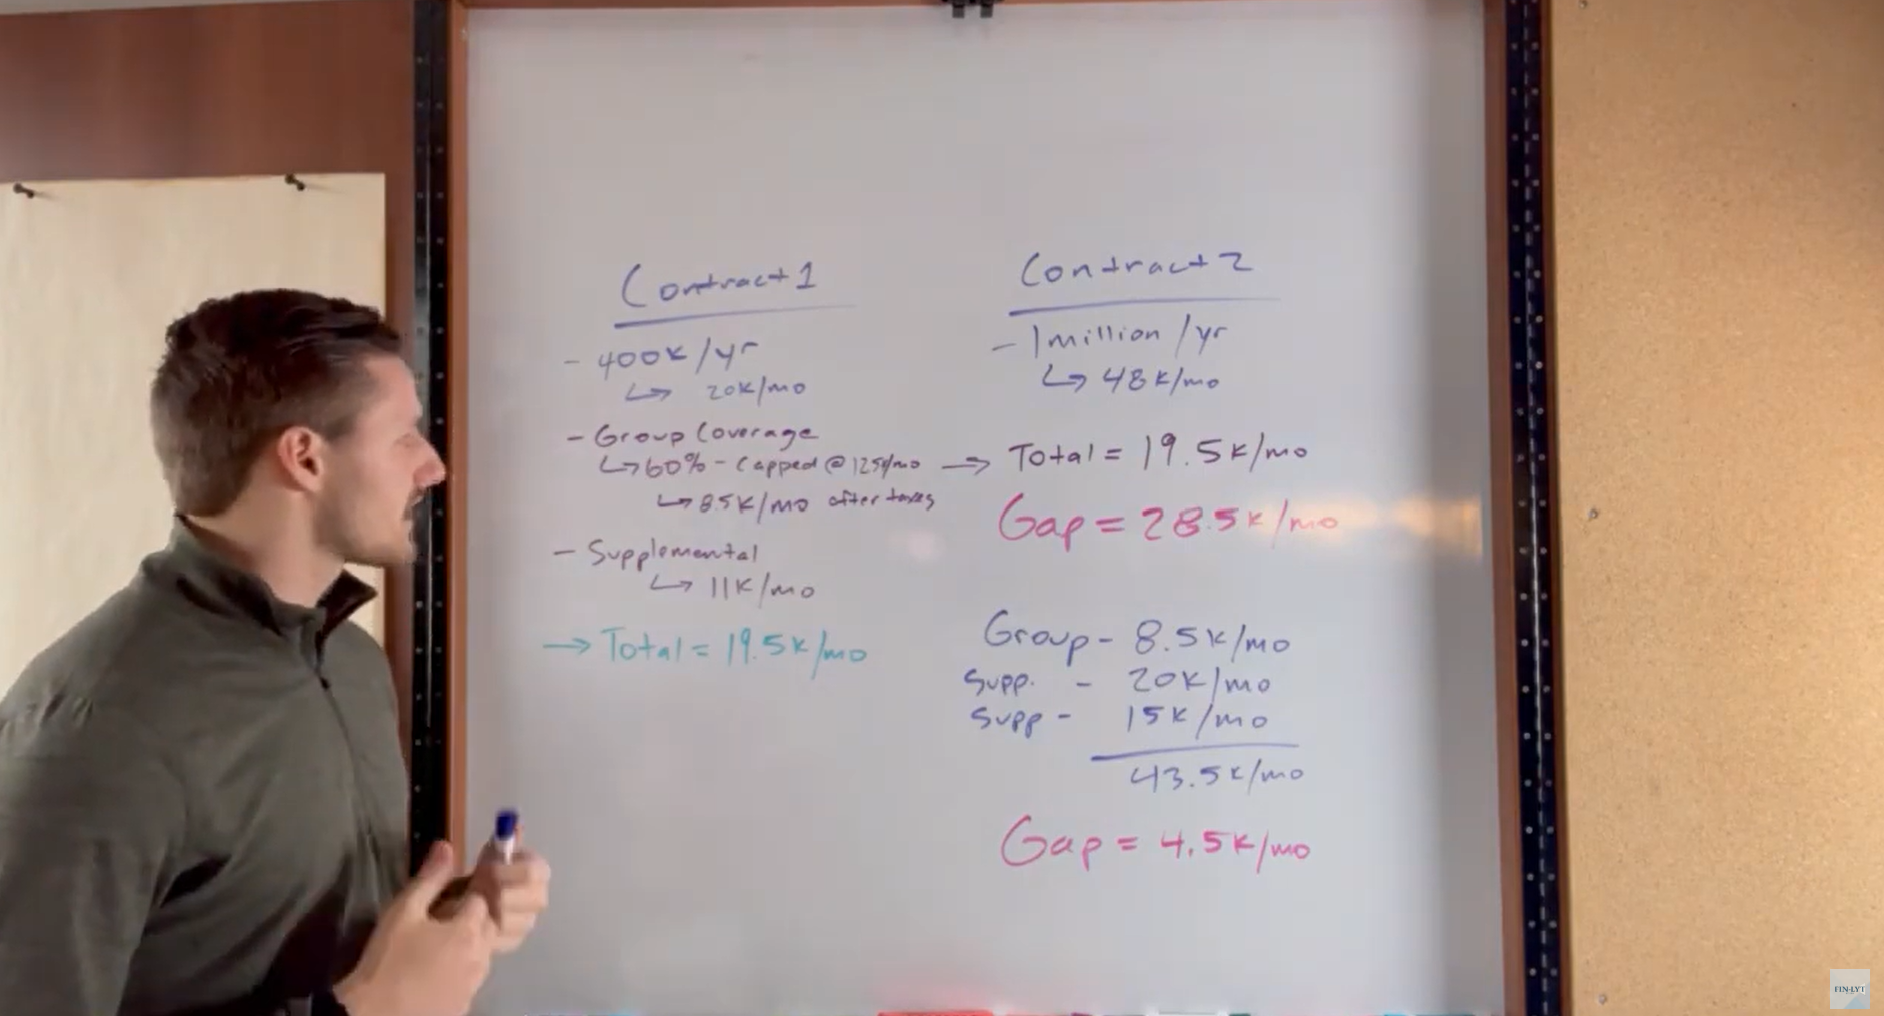 Contract 1
- 400k/yr
↳ 20k/mo
- Group Coverage
↳ 60% - Capped @ 12.5k/mo
↳ 8.5k/mo after taxes
- Supplemental
↳ 11k/mo
→ Total = 19.5k/mo
Contract 2
- 1 million/yr
↳ 48k/mo
→ Total = 19.5k/mo
Gap = 28.5k/mo
Group - 8.5k/mo
Supp. - 20k/mo
Supp - 15k/mo
43.5k/mo
Gap = 4.5k/mo
FIN-LYT